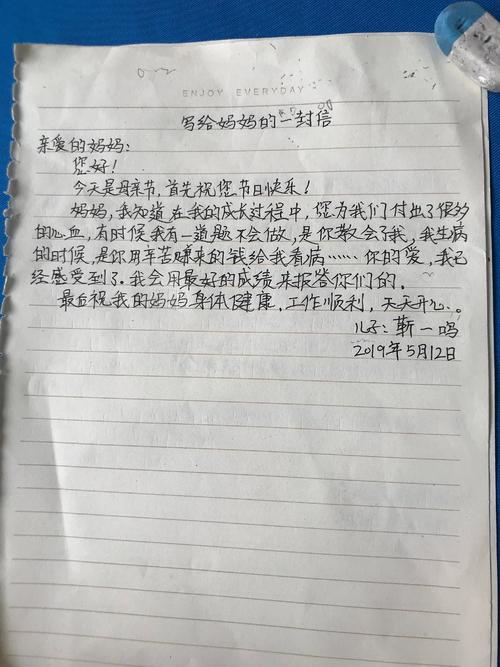 ENJOY EVERYDAY
写给妈妈的一封信
亲爱的妈妈:
您好!
今天是母亲节,首先祝您节日快乐!
妈妈,我知道在我的成长过程中,您为我们付出了很多
的心血,有时候我有一道题不会做,是你教会了我,我生病
的时候,是你用辛苦赚来的钱给我看病……你的爱,我已
经感受到了.我会用最好的成绩来报答你们的.
最后祝我的妈妈身体健康,工作顺利,天天开心.。
儿子:靳一鸣
2019年5月12日